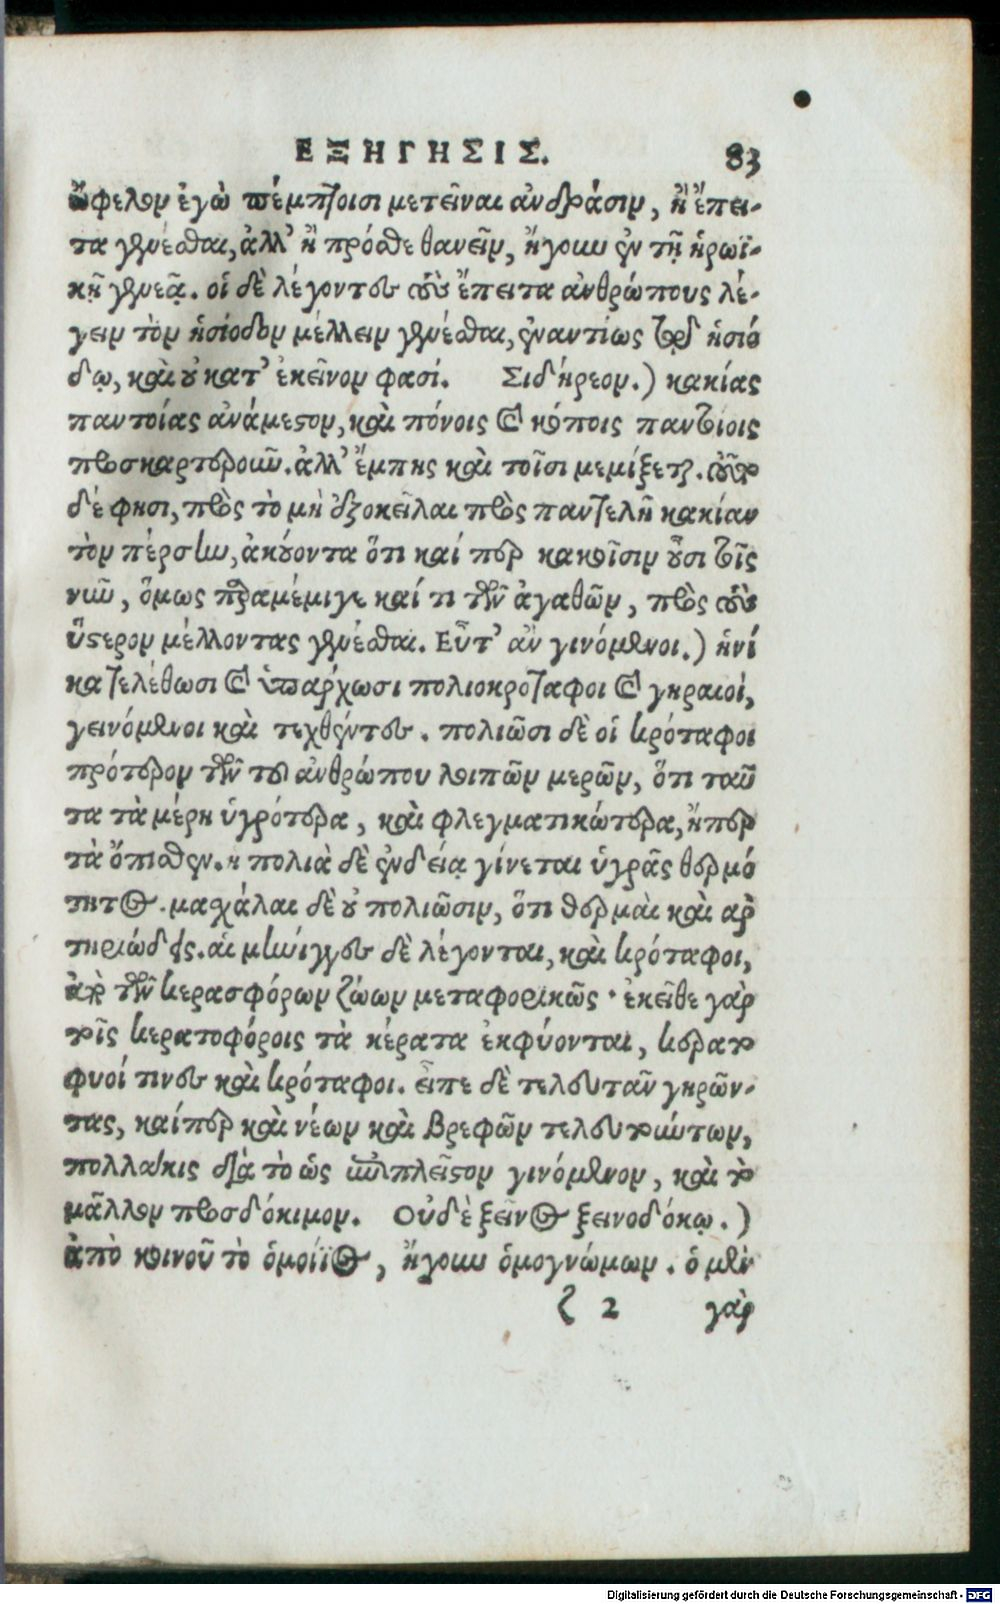 ΕΞΗΓΗΣΙΣ. 83
ὤφελον ἐγὼ πέμπτοισι μετεῖναι ἀνδράσιν, ἢ ἔπει-
τα γενέσθαι, ἀλλ' ἢ πρόσθε θανεῖν, ἤγουν ἐν τῇ ἡρωϊ-
κῇ γενεᾷ. οἱ δὲ λέγοντες τοὺς ἔπειτα ἀνθρώπους λέ-
γειν τὸν ἡσίοδον μέλλειν γενέσθαι, ἐναντίως τῷ ἡσιό
δῳ, καὶ οὐ κατ' ἐκεῖνον φασί. Σιδήρεον.) κακίας
παντοίας ἀνάμεστον, καὶ πόνοις καὶ κόποις παντοίοις
προσκαρτεροῦν. ἀλλ' ἔμπης καὶ τοῖσι μεμίξεται. τοῦτο
δέ φησι, πρὸς τὸ μὴ ἐξοκεῖλαι πρὸς παντελῆ κακίαν
τὸν πέρσην, ἀκούοντα ὅτι καί περ κακοῖσιν οὖσι τοῖς
νῦν, ὅμως παραμέμιγέ καί τι τῶν ἀγαθῶν, πρὸς τοὺς
ὕστερον μέλλοντας γενέσθαι. Εὖτ' ἂν γινόμενοι.) ἡνί
κα τελέθωσι καὶ ὑπάρχωσι πολιοκρόταφοι καὶ γηραιοί,
γεινόμενοι καὶ τεχθέντες. πολιῶσι δὲ οἱ κρόταφοι
πρότερον τῶν τοῦ ἀνθρώπου λοιπῶν μερῶν, ὅτι ταῦ
τα τὰ μέρη ὑγρότερα, καὶ φλεγματικώτερα, ἤπερ
τὰ ὄπισθεν. ἡ πολιὰ δὲ ἐνδείᾳ γίνεται ὑγρᾶς θερμό
τητος. μασχάλαι δὲ οὐ πολιῶσιν, ὅτι θερμαὶ καὶ ἀρ
τηριώδεις. αἱ μήνιγγες δὲ λέγονται, καὶ κρόταφοι,
ἀπὸ τῶν κερασφόρων ζώων μεταφορικῶς· ἐκεῖθε γὰρ
τοῖς κερατοφόροις τὰ κέρατα ἐκφύονται, κερατο
φυοί τινες καὶ κρόταφοι. εἶπε δὲ τελευτᾶν γηρῶν-
τας, καίπερ καὶ νέων καὶ βρεφῶν τελευτώντων,
πολλάκις διὰ τὸ ὡς ἐπιπλεῖστον γινόμενον, καὶ τὸ
μᾶλλον προσδόκιμον. Οὐδὲ ξεῖνος ξεινοδόκῳ.)
ἀπὸ κοινοῦ τὸ ὁμοίϊος, ἤγουν ὁμογνώμων. ὁ μὲν
ζ 2 γὰρ
Digitalisierung gefördert durch die Deutsche Forschungsgemeinschaft - DFG